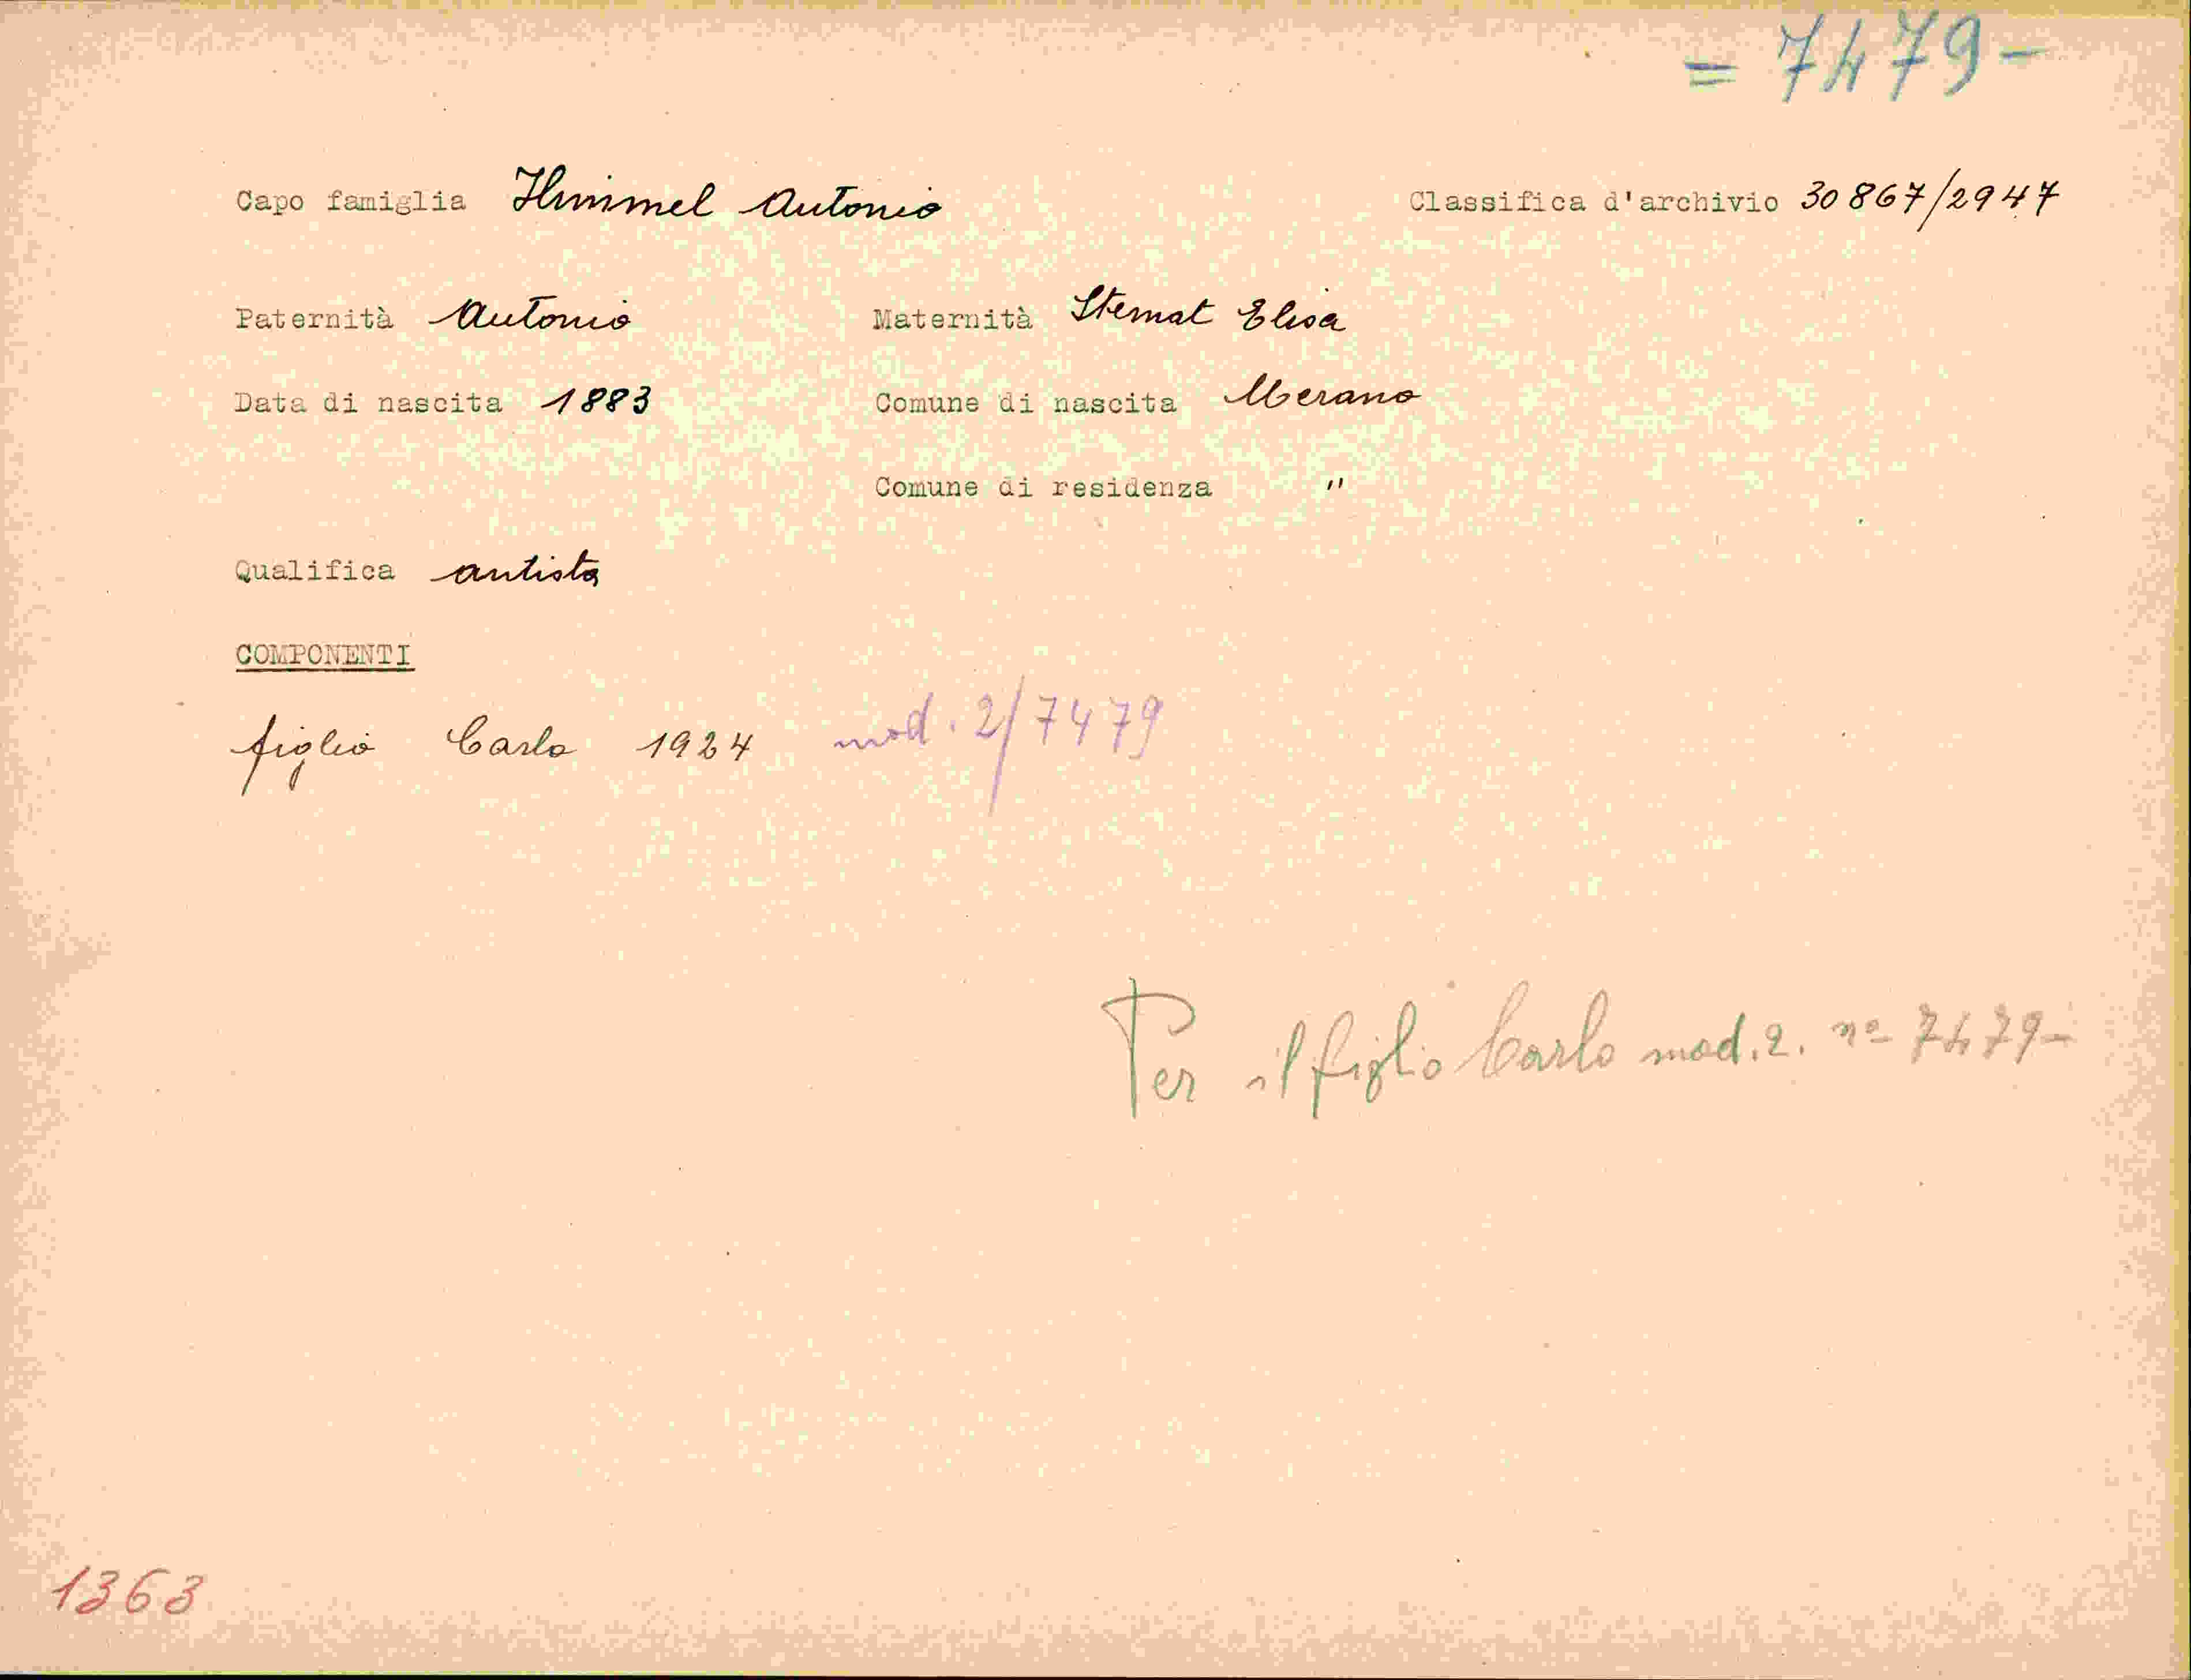 = 7479-
Capo famiglia Himmel Antonio Classifica d'archivio 30867/2947
Paternità Antonio Maternità Stemat Elisa
Data di nascita 1883 Comune di nascita Merano
Comune di residenza "
Qualifica autista
COMPONENTI
figlio Carlo 1924 mod. 2/7479
Per il figlio Carlo mod. 2. nº 7479-
1363